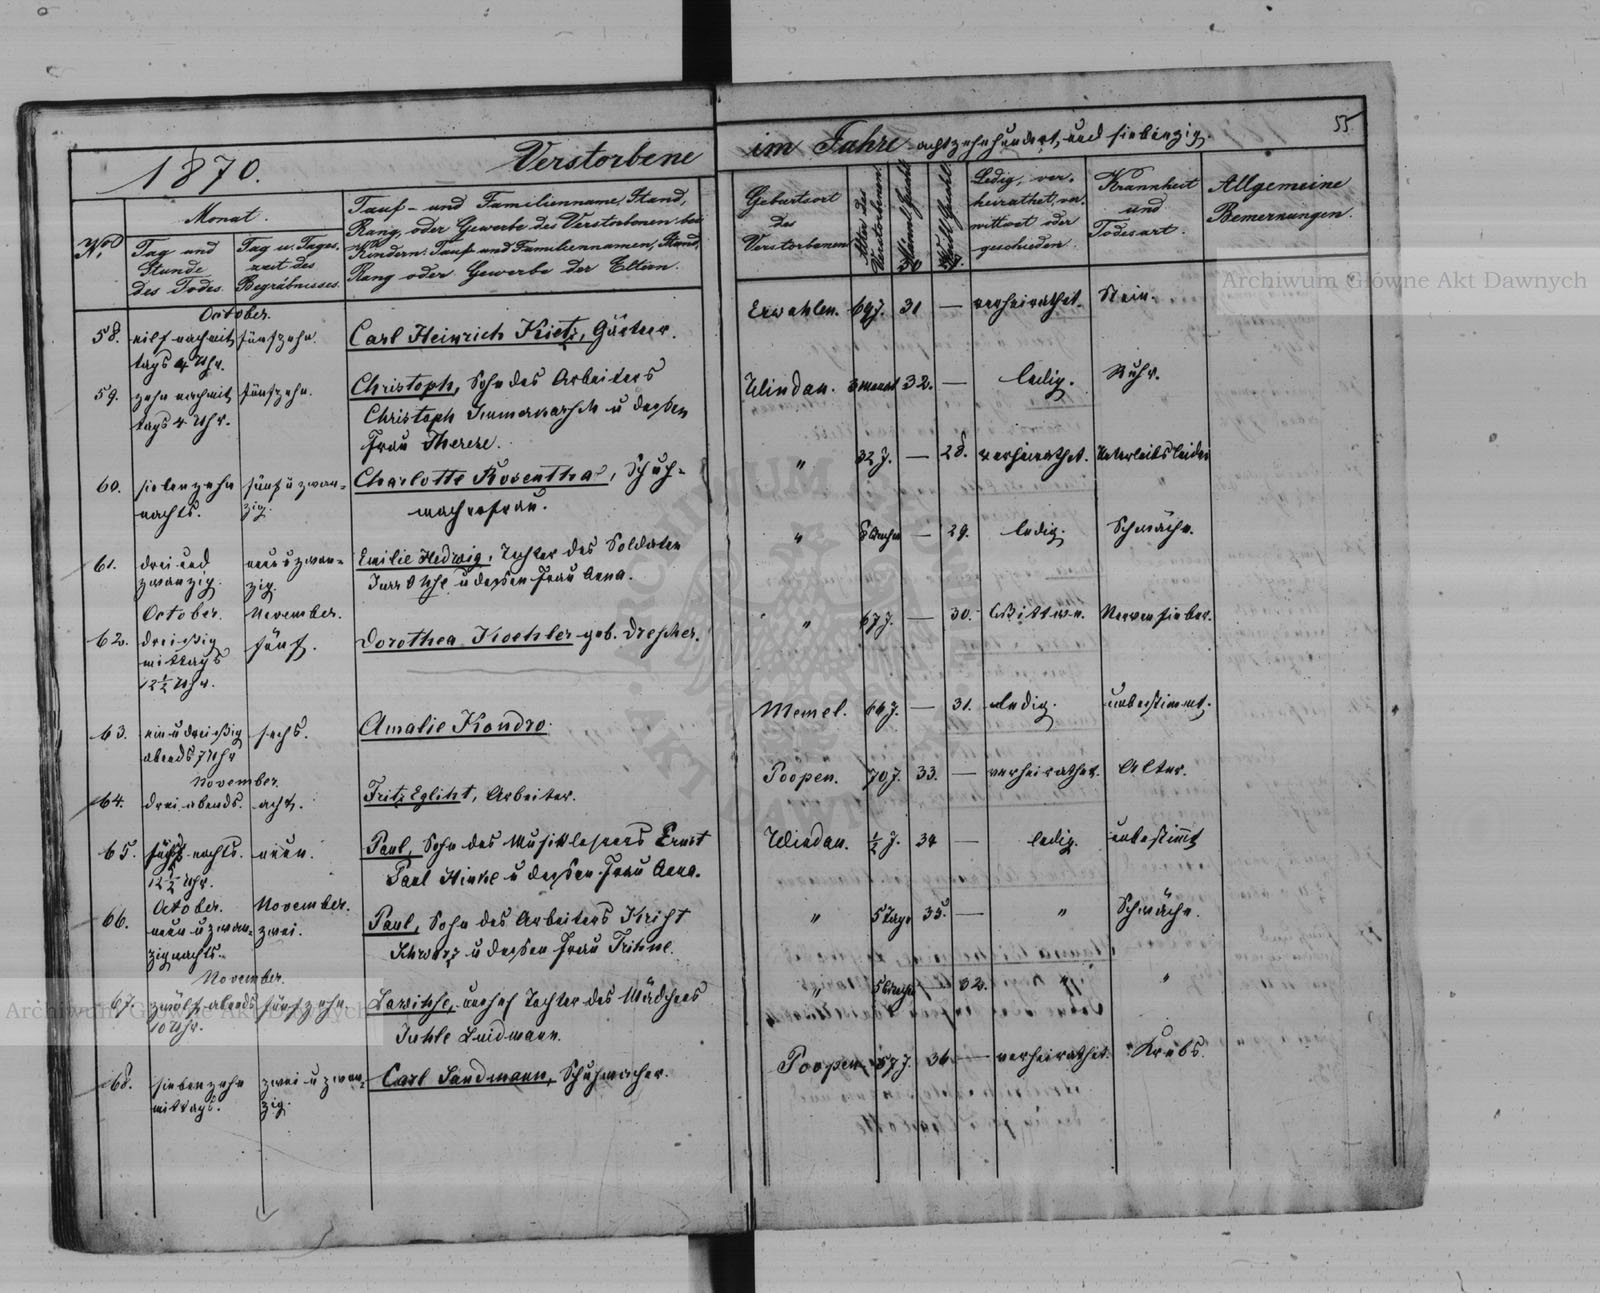 55
1870. Verstorbene
im Jahre achtzehnhundert und siebenzig.
No.
Monat.
Tag und
Stunde
des Todes.
Tag u. Tages-
zeit des
Begräbnisses.
Tauf- und Familienname, Stand,
Rang, oder Gewerbe des Verstorbenen bei
Kindern: Tauf- und Familiennamen, Stand,
Rang oder Gewerbe der Eltern.
Geburtsort
des
Verstorbenen
Alter des
Verstorbenen.
Männl. Geschl.
Weibl. Geschl.
Ledig, ver-
heirathet, ver-
wittwet oder
geschieden.
Krankheit
und
Todesart.
Allgemeine
Bemerkungen.
October.
58. eilf nachmit fünfzehn. Carl Heinrich Kietz, Gärtner. Erwahlen. 69 J. 31 — verheirathet. Stein.
tags 4 Uhr.
59. zehn nachmit fünfzehn. Christoph, Sohn des Arbeiters Windau. 3 Monat 32. — ledig. Ruhr.
tags 4 Uhr. Christoph u dessen
Frau Therese.
60. siebenzehn fünf u zwan- Charlotte Rosenthal, Schuh- " 32 J. — 28. verheirathet. Unterleibsleiden
nachts. zig. macherfrau.
61. drei und neun u zwan- Emilie Hedwig, Tochter des Soldaten " — 29. ledig. Schwäche.
zwanzig. zig. u dessen Frau Anna.
October. November.
62. dreissig fünf. Dorothea Koehler geb. Drescher. " 67 J. — 30. Wittwe. Nervenfieber.
mittags
12 ½ Uhr.
63. ein u dreissig sechs. Amalie Kondro. Memel. 66 J. — 31. ledig. unbestimmt.
abends 7 Uhr
November.
64. drei abends. acht. Fritz Egliht, Arbeiter. Poopen. 70 J. 33. — verheirathet. Alter.
65. nachts. neun. Paul, Sohn des Musiklehrers Ernst Windau. ½ J. 34 — ledig. unbestimmt
12 ½ Uhr. Paul Hinke u dessen Frau Anna.
October. November.
66. neun u zwan- zwei. Paul, Sohn des Arbeiters Krist " 5 Tage 35. — " Schwäche.
zig nachts. Schwarz u dessen Frau Trihne.
November.
67. zwölf abends fünfzehn. Lawihse, unehel Tochter des Mädchens " 32. " "
10 Uhr. Juhle Luidmann.
68. siebenzehn zwei u zwan- Carl Sandmann, Schuhmacher. Poopen. 57 J. 36 — verheirathet. Krebs.
mittags. zig.
Archiwum Główne Akt Dawnych
Archiwum Główne Akt Dawnych
ARCHIWUM GŁÓWNE AKT DAWNYCH